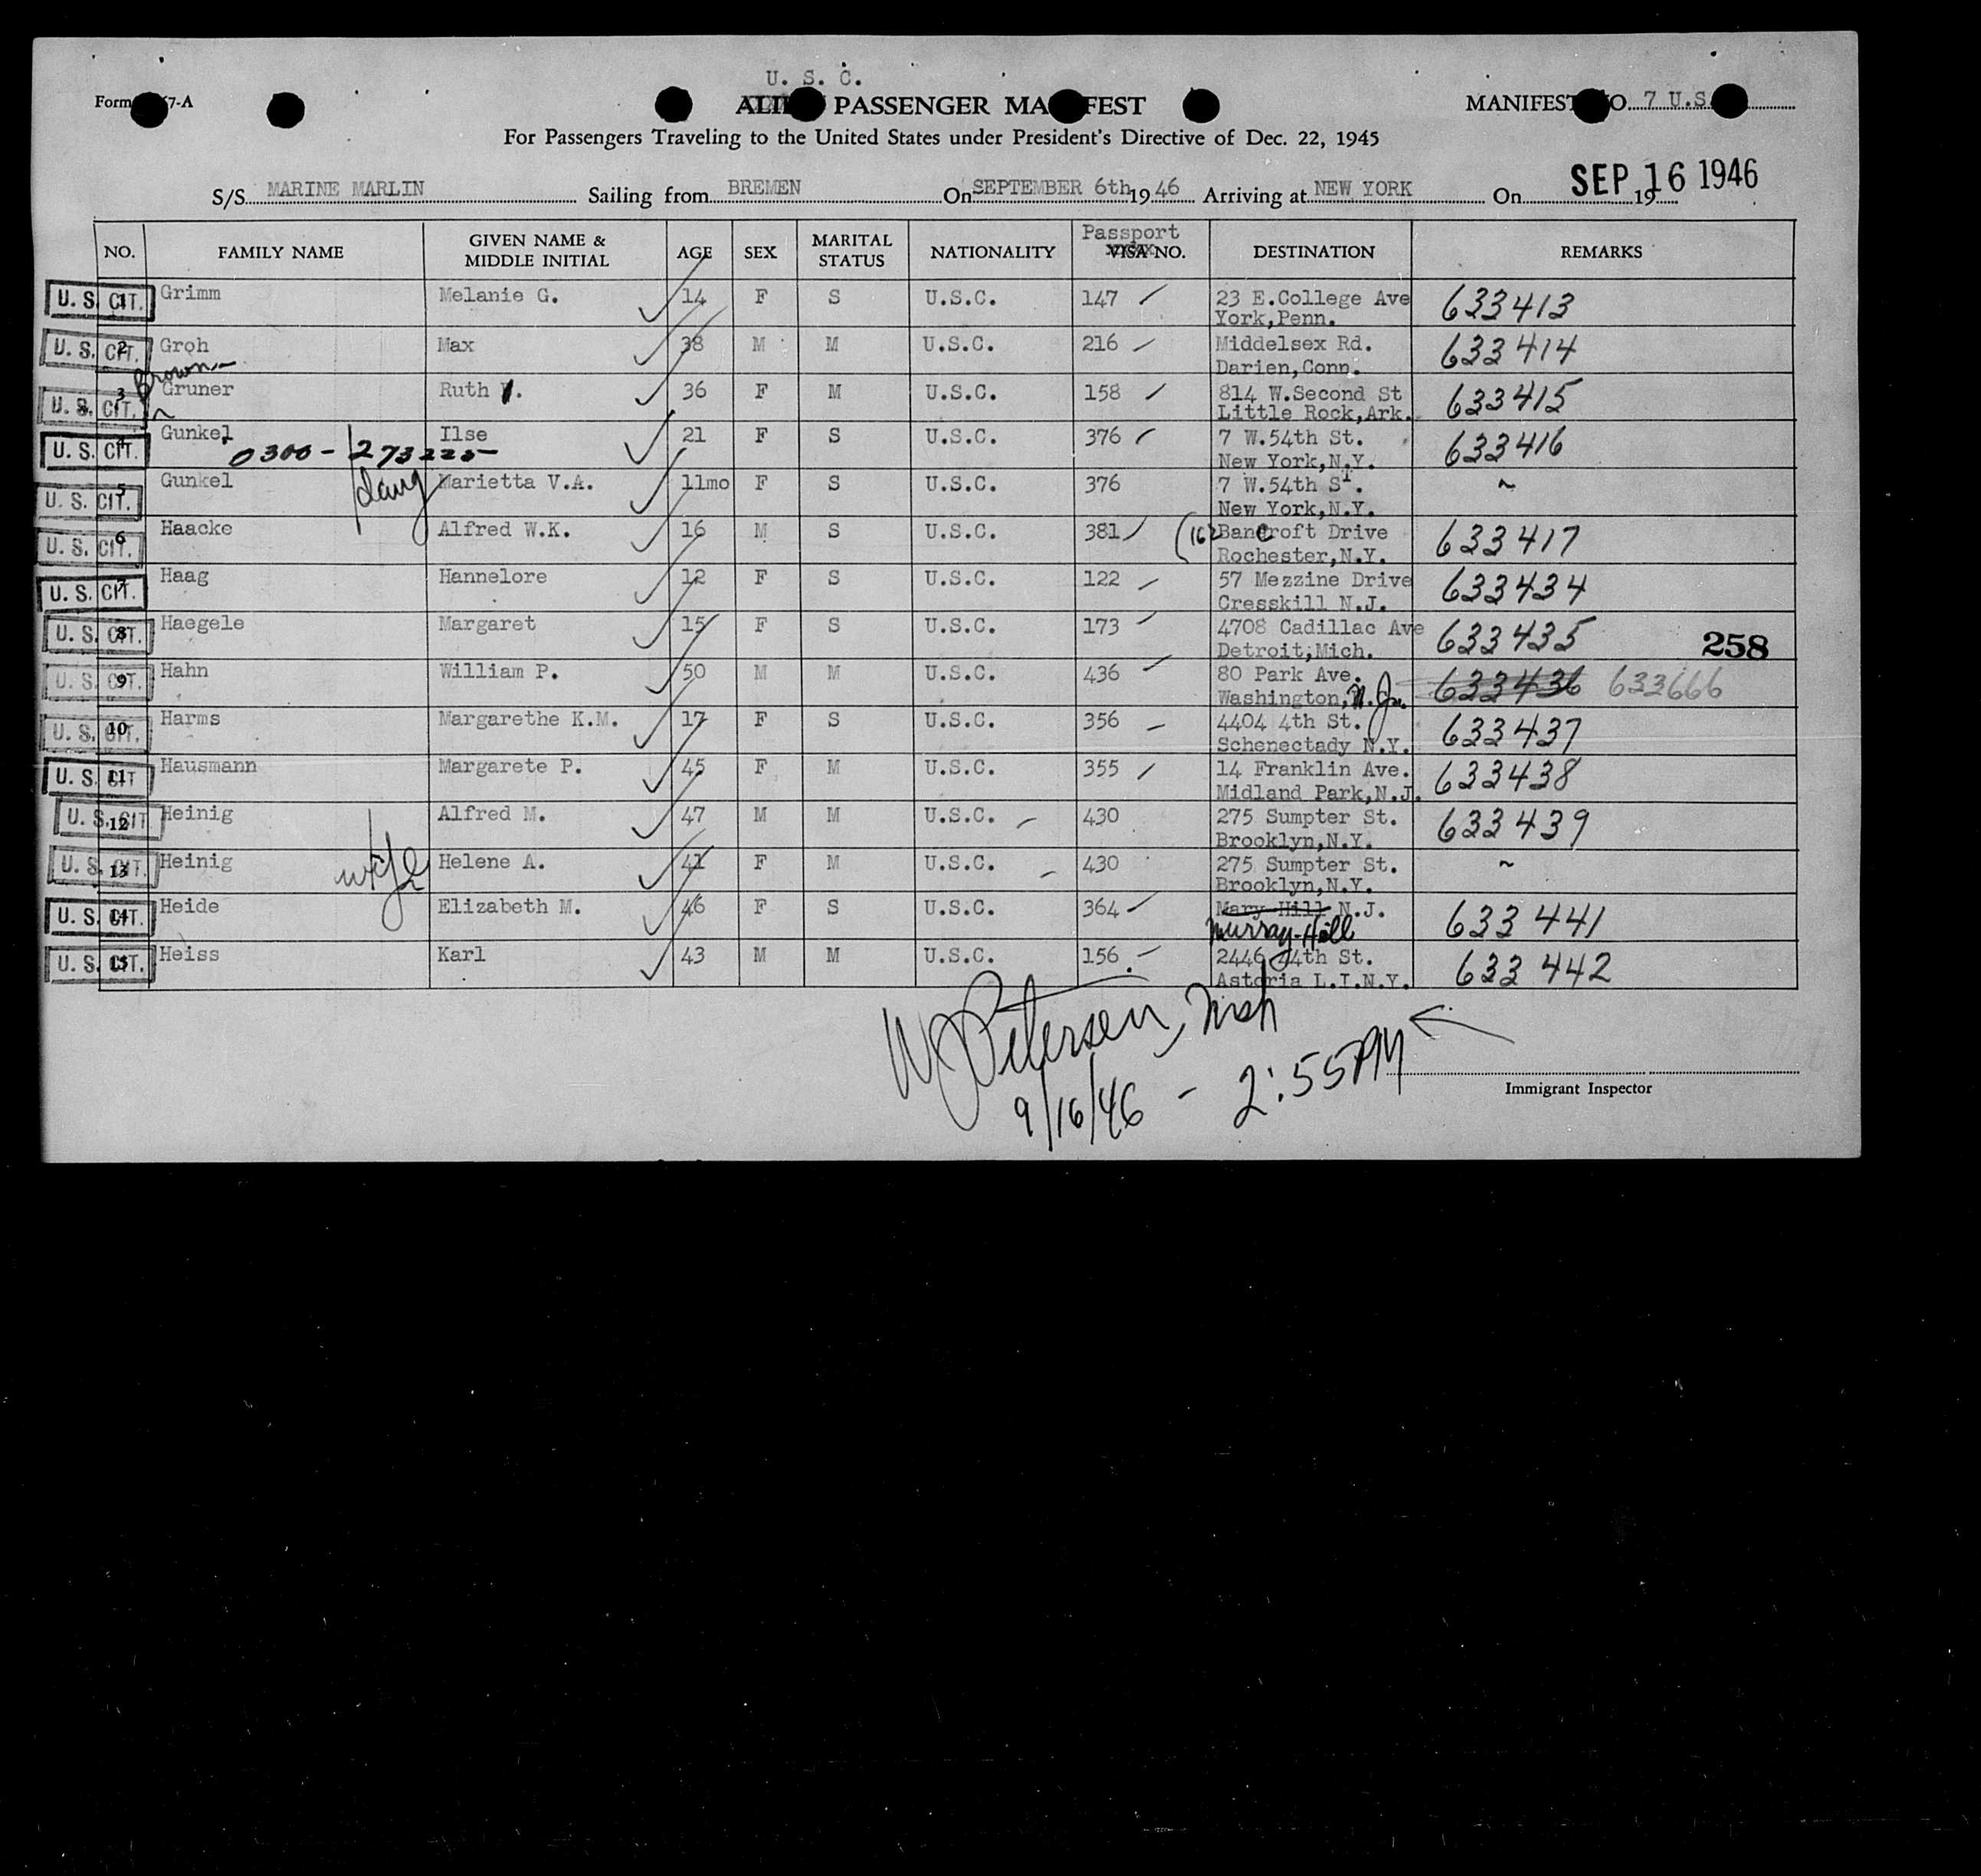 U. S. C.
Form 7-A PASSENGER MANIFEST MANIFEST NO. 7 U.S.
For Passengers Traveling to the United States under President's Directive of Dec. 22, 1945
S/S MARINE MARLIN Sailing from BREMEN On SEPTEMBER 6th 19 46 Arriving at NEW YORK On SEP 16 1946 19
Passport
NO. FAMILY NAME GIVEN NAME & MIDDLE INITIAL AGE SEX MARITAL STATUS NATIONALITY VISA NO. DESTINATION REMARKS
U. S. CIT. 1 Grimm Melanie G. 14 F S U.S.C. 147 23 E.College Ave 633413
York,Penn.
U. S. CIT. 2 Groh Max 38 M M U.S.C. 216 Middelsex Rd. 633414
Darien,Conn.
Brown
U. S. CIT. 3 Gruner Ruth . 36 F M U.S.C. 158 814 W.Second St 633415
Little Rock,Ark.
U. S. CIT. 4 Gunkel Ilse 21 F S U.S.C. 376 7 W.54th St. 633416
0300-273225 New York,N.Y.
U. S. CIT. 5 Gunkel daug Marietta V.A. 11mo F S U.S.C. 376 7 W.54th St. ~
New York,N.Y.
U. S. CIT. 6 Haacke Alfred W.K. 16 M S U.S.C. 381 (162 Bancroft Drive 633417
Rochester,N.Y.
U. S. CIT. 7 Haag Hannelore 12 F S U.S.C. 122 57 Mezzine Drive 633434
Cresskill N.J.
U. S. CIT. 8 Haegele Margaret 15 F S U.S.C. 173 4708 Cadillac Ave 633435 258
Detroit;Mich.
U. S. CIT. 9 Hahn William P. 50 M M U.S.C. 436 80 Park Ave. 633436 633666
Washington, N.J.
U. S. CIT. 10 Harms Margarethe K.M. 17 F S U.S.C. 356 4404 4th St. 633437
Schenectady N.Y.
U. S. CIT 11 Hausmann Margarete P. 45 F M U.S.C. 355 14 Franklin Ave. 633438
Midland Park,N.J.
U. S. CIT 12 Heinig Alfred M. 47 M M U.S.C. 430 275 Sumpter St. 633439
Brooklyn,N.Y.
U. S. CIT. 13 Heinig wife Helene A. 41 F M U.S.C. 430 275 Sumpter St. ~
Brooklyn,N.Y.
U. S. CIT. 14 Heide Elizabeth M. 46 F S U.S.C. 364 Mary Hill N.J. 633 441
Murray-Hill
U. S. CIT. 15 Heiss Karl 43 M M U.S.C. 156 2446 44th St. 633 442
Astoria L.I.N.Y.
W Petersen,
9/16/46 - 2:55PM
Immigrant Inspector